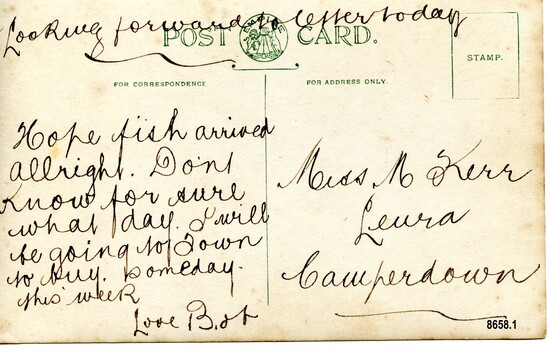 Looking forward to letter today
POST CARD.
EMPIRE
STAMP.
FOR CORRESPONDENCE.
FOR ADDRESS ONLY.
Hope fish arrived
allright. Don't
know for sure
what day I will
be going to Town
to buy. Someday.
this week
Love
Miss M Kerr
Leura
Camperdown
8658.1